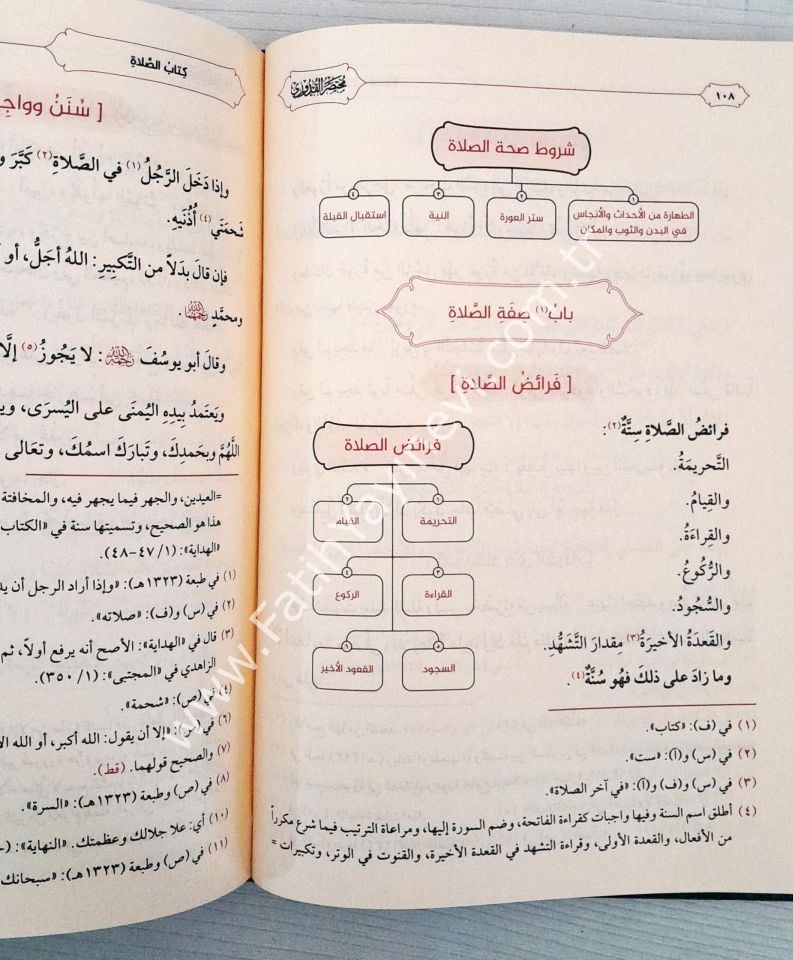 ١٠٨
مختصر القدوري
شروط صحة الصلاة
١
الطهارة من الأحداث والأنجاس
في البدن والثوب والمكان
٢
ستر العورة
٣
النية
٤
استقبال القبلة
باب (١) صِفَةِ الصَّلاةِ
[ فَرائضُ الصَّلاةِ ]
فرائضُ الصَّلاةِ سِتَّةٌ (٢):
التَّحريمَةُ.
والقِيامُ.
والقِراءَةُ.
والرُّكوعُ.
والسُّجودُ.
والقَعدَةُ الأخيرَةُ (٣) مِقدارَ التَّشَهُّدِ.
وما زادَ على ذلكَ فهُو سُنَّةٌ (٤).
فرائض الصلاة
١
التحريمة
٢
القيام
٣
القراءة
٤
الركوع
السجود
٦
القعود الأخير
(١) في (ف): «كتاب».
(٢) في (س) و(أ): «ست».
(٣) في (س) و(ف) و(أ): «في آخر الصلاة».
(٤) أطلق اسم السنة وفيها واجبات كقراءة الفاتحة، وضم السورة إليها، ومراعاة الترتيب فيما شرع مكرراً
من الأفعال، والقعدة الأولى، وقراءة التشهد في القعدة الأخيرة، والقنوت في الوتر، وتكبيرات =
كِتابُ الصَّلاةِ
[ سُنَنُ وواجِ
وإذا دَخَلَ الرَّجُلُ (١) في الصَّلاةِ (٢) كَبَّرَ و
شَحمَتَي (٤) أُذُنَيهِ.
فإن قالَ بَدَلاً من التَّكبيرِ: اللهُ أجَلُّ، أو
ومحمَّدٍ
وقالَ أبو يوسُفَ : لا يَجُوزُ (٥) إلَّا
ويَعتَمِدُ بيدِهِ اليُمنَى على اليُسرَى، و
اللَّهُمَّ وبحَمدِكَ، وتَبارَكَ اسمُكَ، وتعَالى
=العيدين، والجهر فيما يجهر فيه، والمخافتة
هذا هو الصحيح، وتسميتها سنة في «الكتاب
الهداية»: (١/ ٤٧-٤٨).
(١) في طبعة (١٣٢٣هـ): «وإذا أراد الرجل أن
(٢) في (س) و(ف): «صلاته».
(٣) قال في «الهداية»: الأصح أنه يرفع أولاً، ثم
الزاهدي في «المجتبى»: (١/ ٣٥٠).
(٤) في (ص): «شحمة».
(٦) في (س): «إلا أن يقول: الله أكبر، أو الله
(٧) والصحيح قولهما. (قط).
(٨) في (ص) وطبعة (١٣٢٣هـ): «السرة».
(١٠) أي: علا جلالك وعظمتك. «النهاية»:
(١١) في (ص) وطبعة (١٣٢٣هـ): «سبحانك
www.FatihYayinevi.com.tr